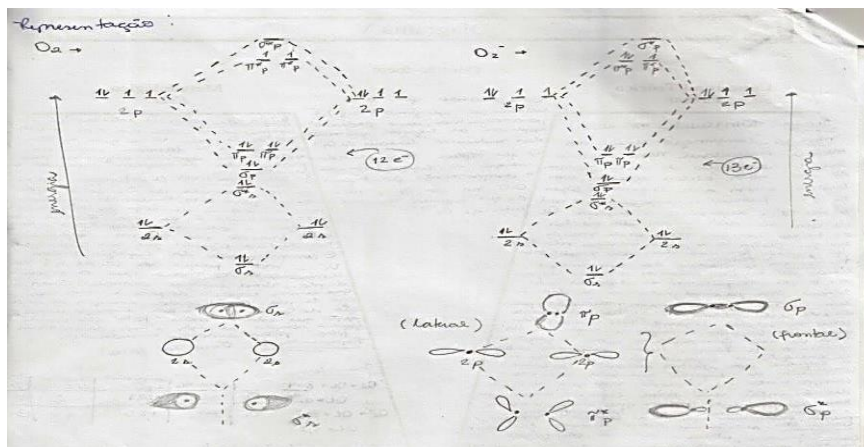 Representação :
O₂ →
σ*p
π*p π*p
2p
2p
πp πp
σp
σ*s
2s
2s
σs
12 e⁻
energia
O₂⁻ →
σ*p
π*p π*p
2p
2p
πp πp
σp
σ*s
2s
2s
σs
13 e⁻
energia
σs
σ*s
(lateral)
πp
2p
2p
π*p
σp
(frontal)
σ*p